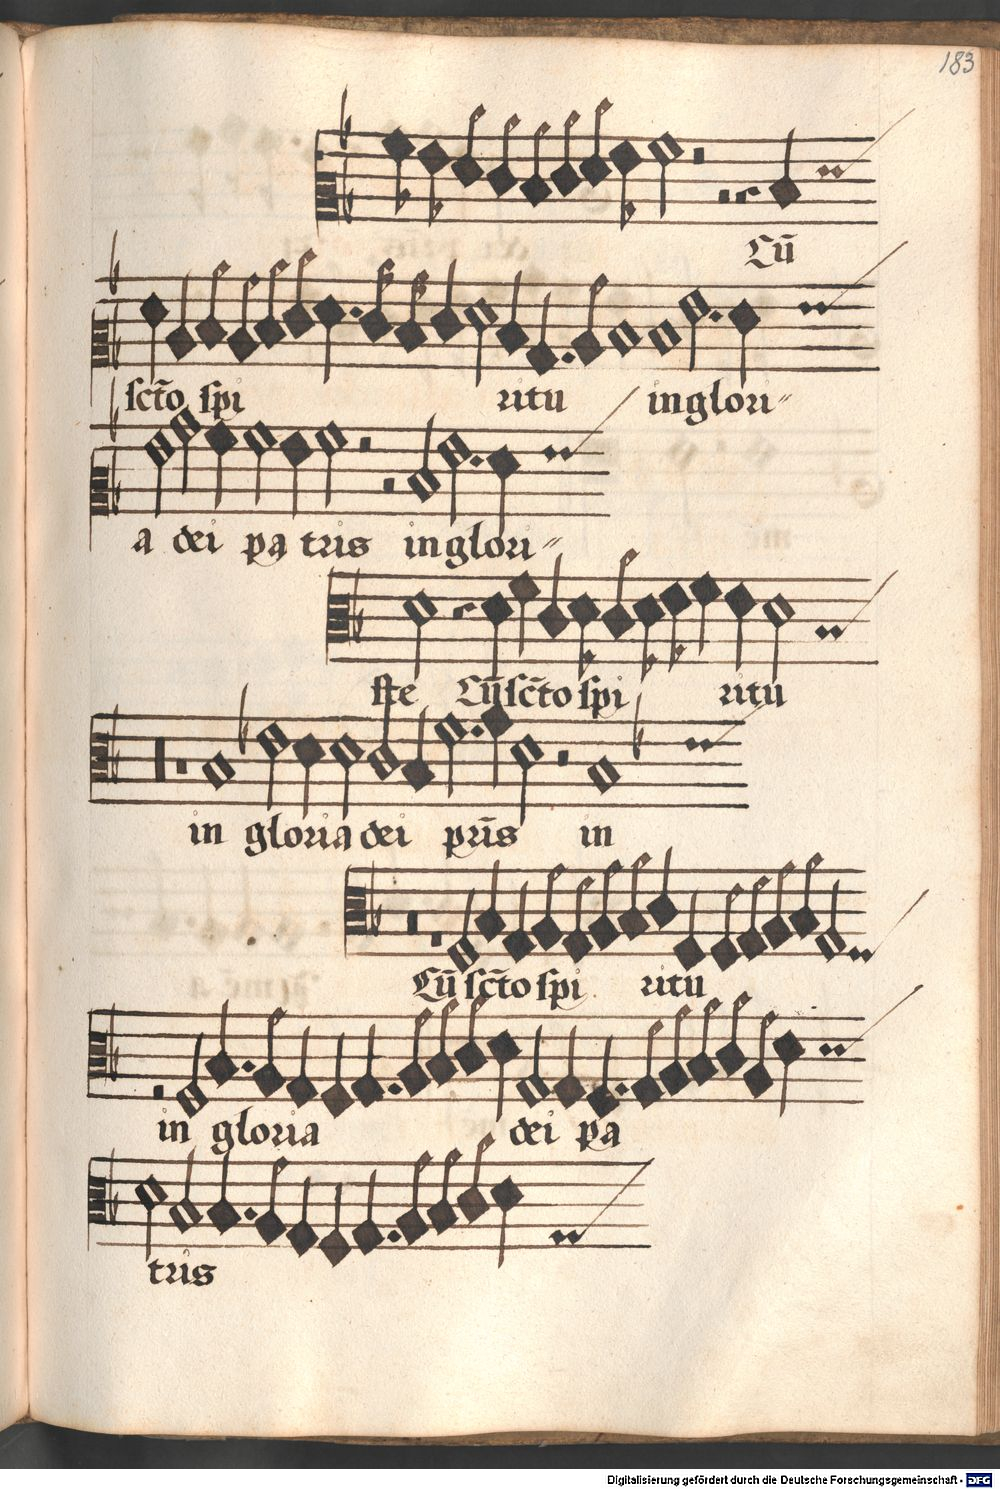 183
Cū
sct̄o spi ritu in glori〃
a dei pa tris in glori〃
ste Cū sct̄o spi ritu
in gloria dei pr̄is in
Cū sct̄o spi ritu
in gloria dei pa
tris
Digitalisierung gefördert durch die Deutsche Forschungsgemeinschaft - DFG